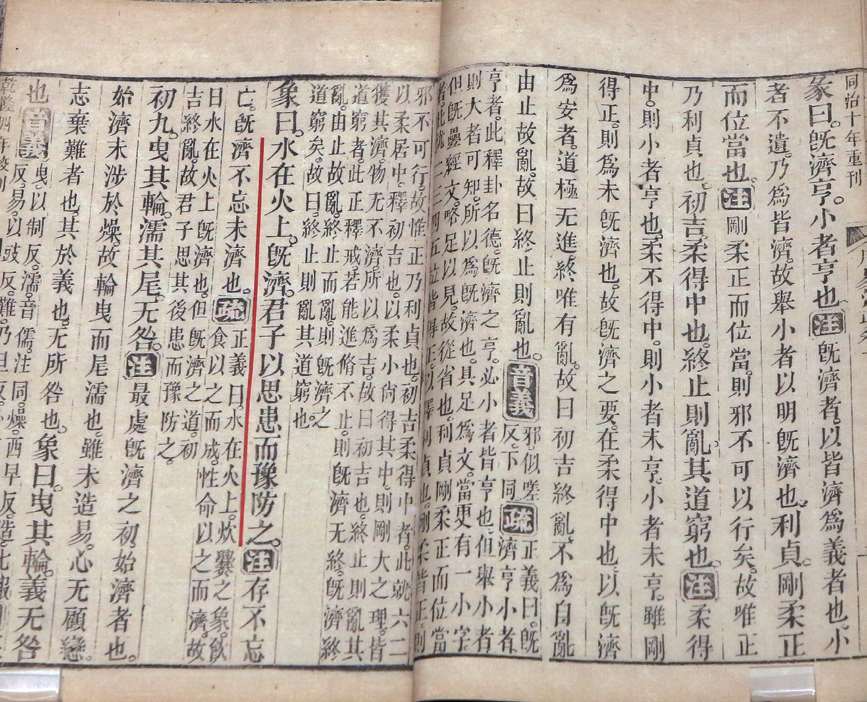 同治十年重刊
彖曰。既濟亨。小者亨也。注 既濟者。以皆濟爲義者也。小
者不遺。乃爲皆濟。故舉小者以明既濟也。利貞。剛柔正
而位當也。注 剛柔正而位當。則邪不可以行矣。故唯正
乃利貞也。初吉柔得中也。終止則亂。其道窮也。注 柔得
中。則小者亨也。柔不得中。則小者未亨。小者未亨。雖剛
得正。則爲未既濟也。故既濟之要。在柔得中也。以既濟
爲安者。道極无進。終唯有亂。故曰初吉終亂。不爲自亂
由止故亂。故曰終止則亂也。音義 邪似嗟反。下同 疏 正義曰。既濟亨小者
亨者。此釋卦名德。既濟之亨。必小者皆亨也。但舉小者
則大者可知。所以爲既濟也。具足爲文。當更有一小字
但既疊經文。略足以見。故從省也。利貞剛柔正而位當
者此就二三四五位皆得正。以釋利貞也。剛柔皆正則
邪不可行。故惟正乃利貞也。初吉柔得中者。此就六二
以柔居中。釋初吉也。以柔小尚得其中。則剛大之理。皆
獲其濟。物无不濟。所以爲吉。故曰初吉也。終止則亂其
道窮者。此正釋戒。若能進脩不止。則既濟无終。既濟終
亂。由止故亂。終止而亂。則既濟之
道窮矣。故曰。終止則亂其道窮也。
象曰。水在火上。既濟。君子以思患而豫防之。注 存不忘
亡。既濟不忘未濟也。疏 正義曰。水在火上。炊爨之象。飲
食以之而成。性命以之而濟。故
曰水在火上既濟也。但既濟之道。初
吉終亂。故君子思其後患而豫防之。
初九。曳其輪。濡其尾。无咎。注 最處既濟之初。始濟者也。
始濟未涉於燥。故輪曳而尾濡也。雖未造易。心无顧戀。
志棄難者也。其於義也。无所咎也。象曰。曳其輪。義无咎
也。音義 曳以制反。濡音儒。注同。燥西早反。造七報
反。易以豉反。難乃旦反。
乾隆四年校刊